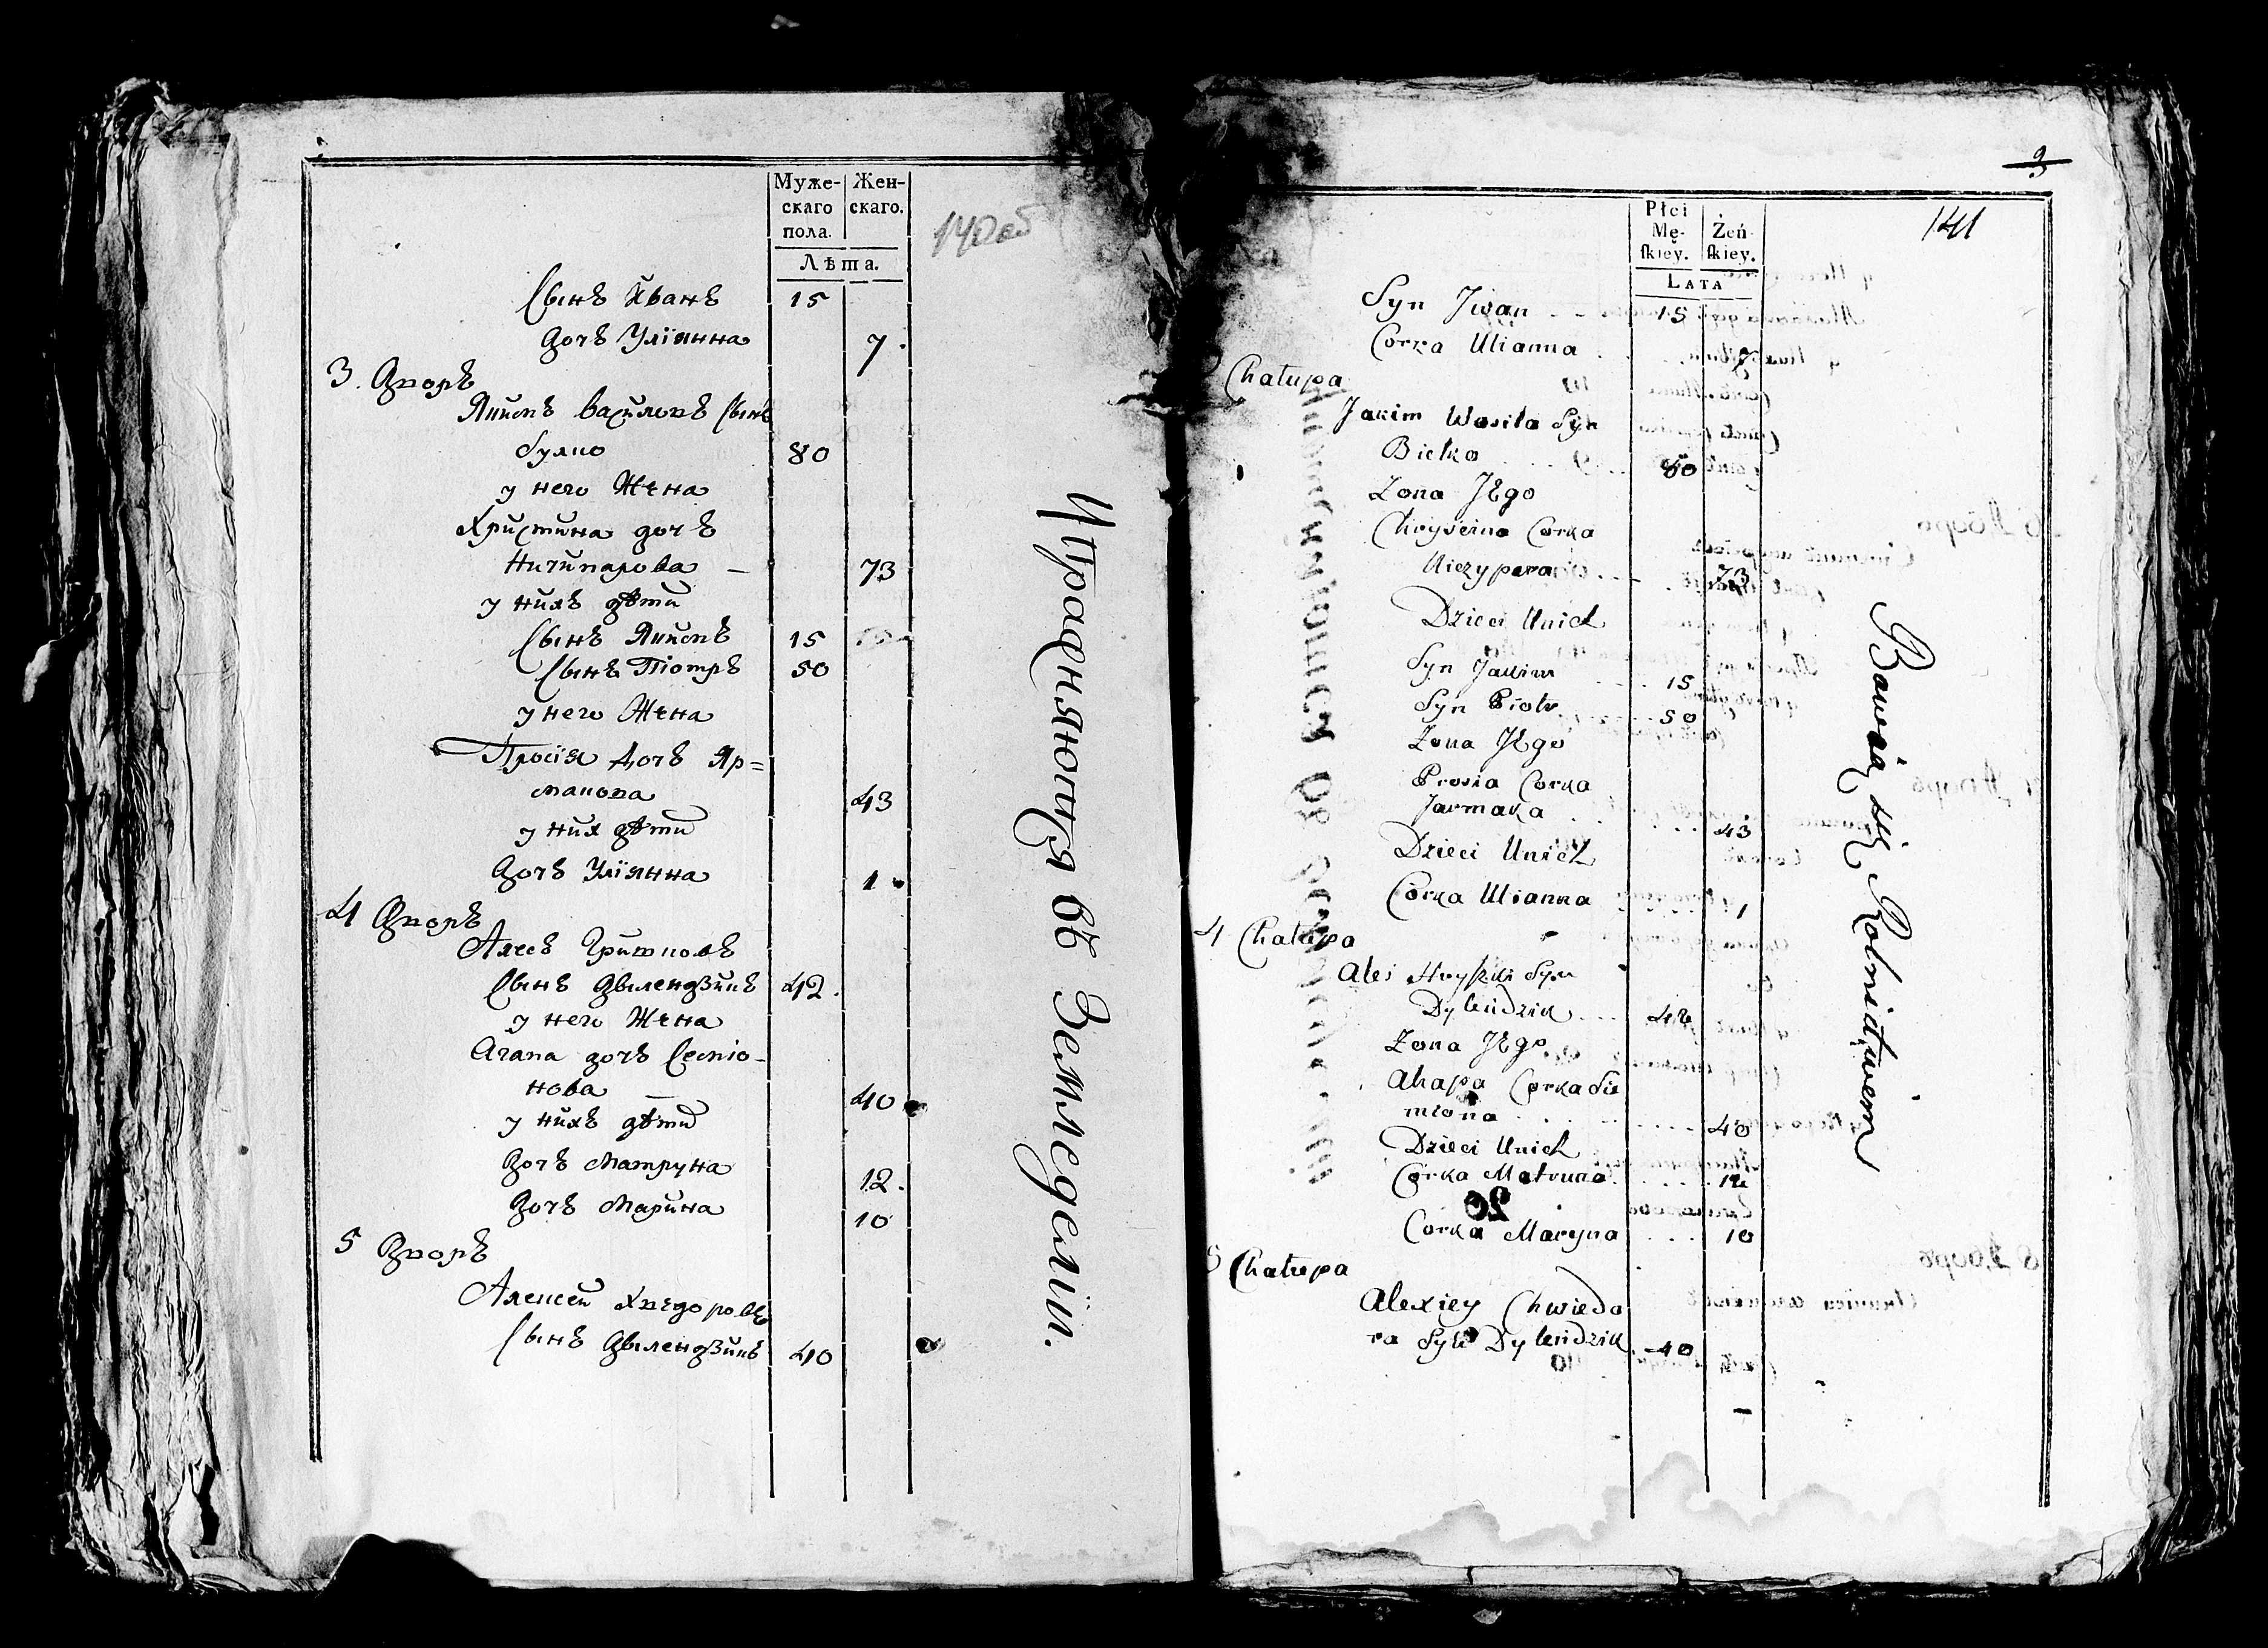 Муже-
скаго
пола.
Жен-
скаго.
Лѣта.
140 об
Сынъ Иванъ 15
Дочъ Улїянна 7.
3. Дворъ
Якимъ Василовъ Сынъ
80
у него Жена
Христина дочъ
Ничипарова — 73
у нихъ дѣти
Сынъ Якимъ 15
Сынъ Піотръ 50
у него Жена
Просїя дочъ Яр=
макова 43
у них дѣти
Дочъ Улїянна 1
4 Дворъ
Алесь Гришковъ
Сынъ Дылендзикъ 42.
у него Жена
Агапа дочъ Семіо-
нова 40
у нихъ дѣти
Дочъ Матруна 12.
Дочъ Марина 10
5 Дворъ
Алексей Хведоровъ
Сынъ Дылендзикъ 40
Упражняются въ Земледелїи.
3
141
Płci
Mę-
ſkiey.
Żeń-
ſkiey.
LATA
Syn Jwan 15
Corka Ulianna 7
Chałupa
Jakim Wasila Syn
Bielko 80
Zona JEgo
Chrystina Corka
Niczypara 73
Dzieci Unich
Syn Jakim 15
Syn Piotr 50
Zona JEgo
Prosia Corka
Jarmaka 43
Dzieci Unich
Corka Ulianna 1
4 Chałupa
Ales Hryſzki Syn
Dylendzik 42
Zona JEgo
Ahapa Corka Sie
miona 40
Dzieci Unich
Corka Matruna 12
Corka Maryna 10
5 Chałupa
Alexiey Chwiedo
ra Syn Dylendzik 40
Bawią się Rolnictwem